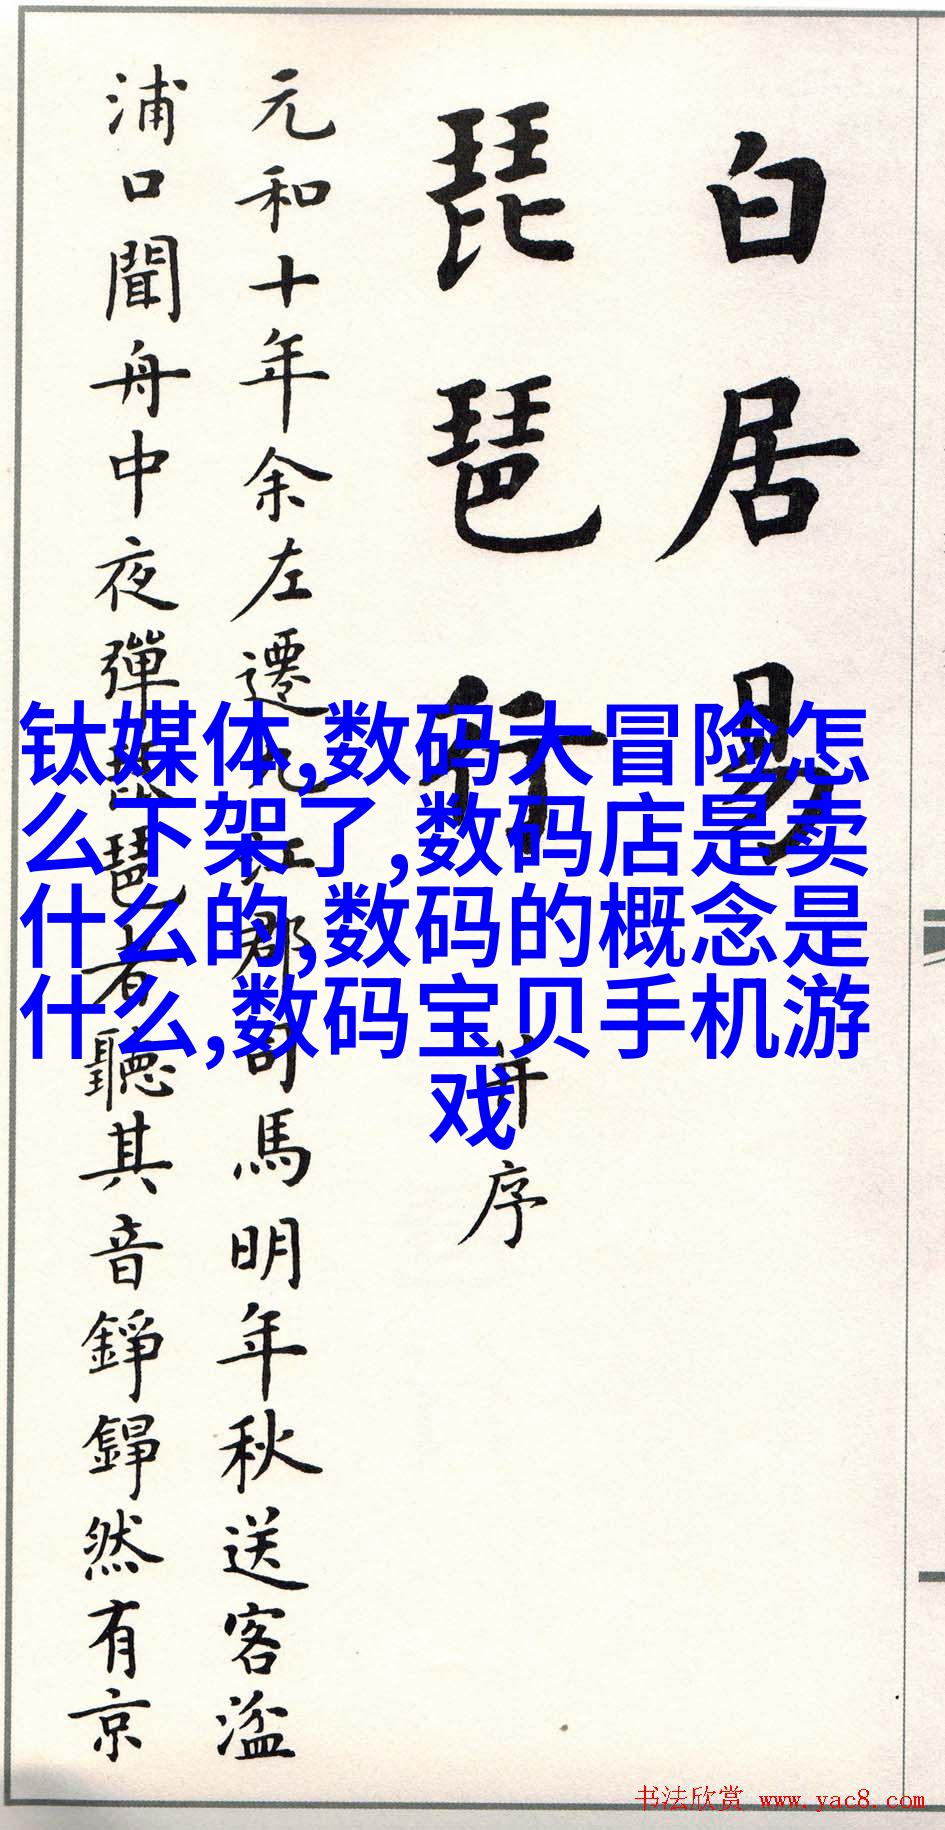 白居易
琵琶行
并序
元和十年余左遷九江郡司馬明年秋送客湓
浦口聞舟中夜彈琵琶者聽其音錚錚然有京
钛媒体,数码大冒险怎
么下架了,数码店是卖
什么的,数码的概念是
什么,数码宝贝手机游
戏
书法欣赏 www.yac8.com